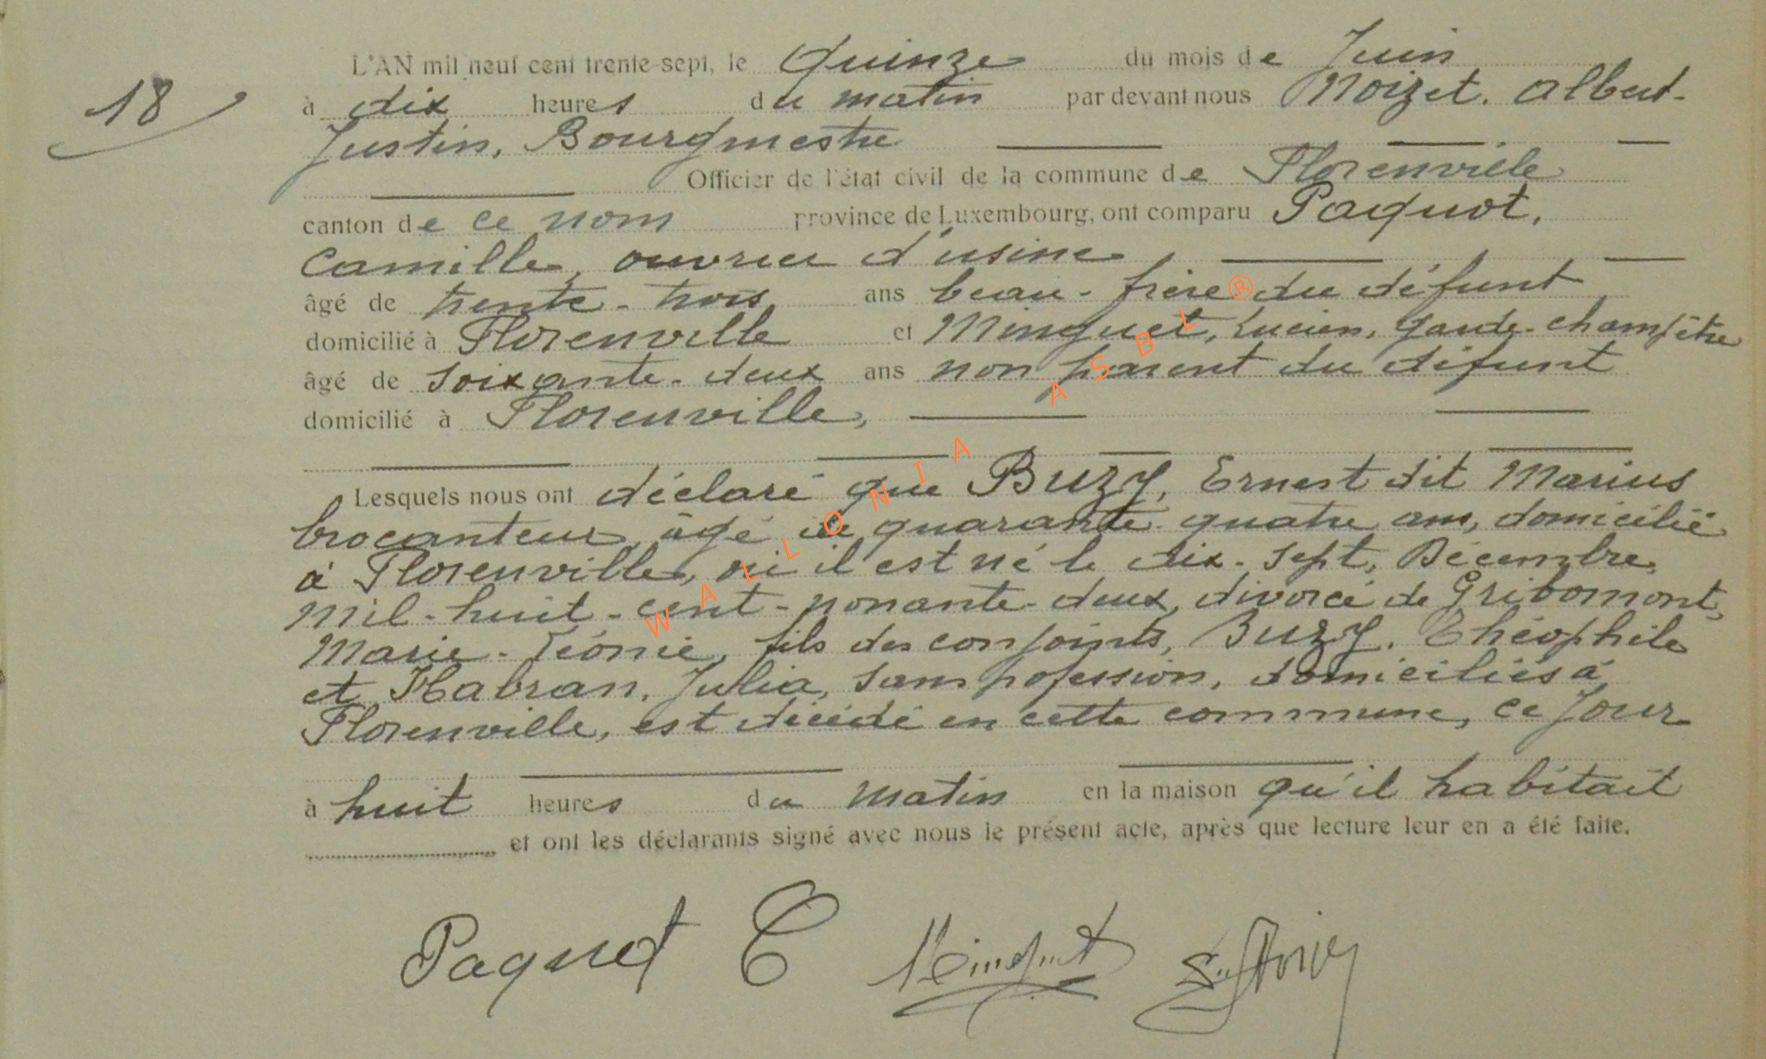 L'AN mil neuf cent trente-sept, le Quinze du mois de Juin
18 à dix heures du matin par devant nous Noizet. Albert-
Justin, Bourgmestre
Officier de l'état civil de la commune de Florenville
canton de ce nom province de Luxembourg, ont comparu Paquot,
Camille, ouvrier d'usine
âgé de trente-trois ans beau-frère du défunt
domicilié à Florenville et Minguet, Lucien, garde-champêtre
âgé de soixante-deux ans non parent du défunt
domicilié à Florenville,
Lesquels nous ont déclaré que Buzy, Ernest dit Marius
brocanteur, âgé de quarante-quatre ans, domicilié
à Florenville, où il est né le dix-sept, Décembre
mil-huit-cent-nonante-deux, divorcé de Gribomont,
Marie-Léonie, fils des conjoints, Buzy, Théophile
et Habran, Julia, sans profession, domiciliés à
Florenville, est décédé en cette commune, ce jour
à huit heures du matin en la maison qu'il habitait
et ont les déclarants signé avec nous le présent acte, après que lecture leur en a été faite.
Paquot C Minguet
WALLONIA ASBL ®